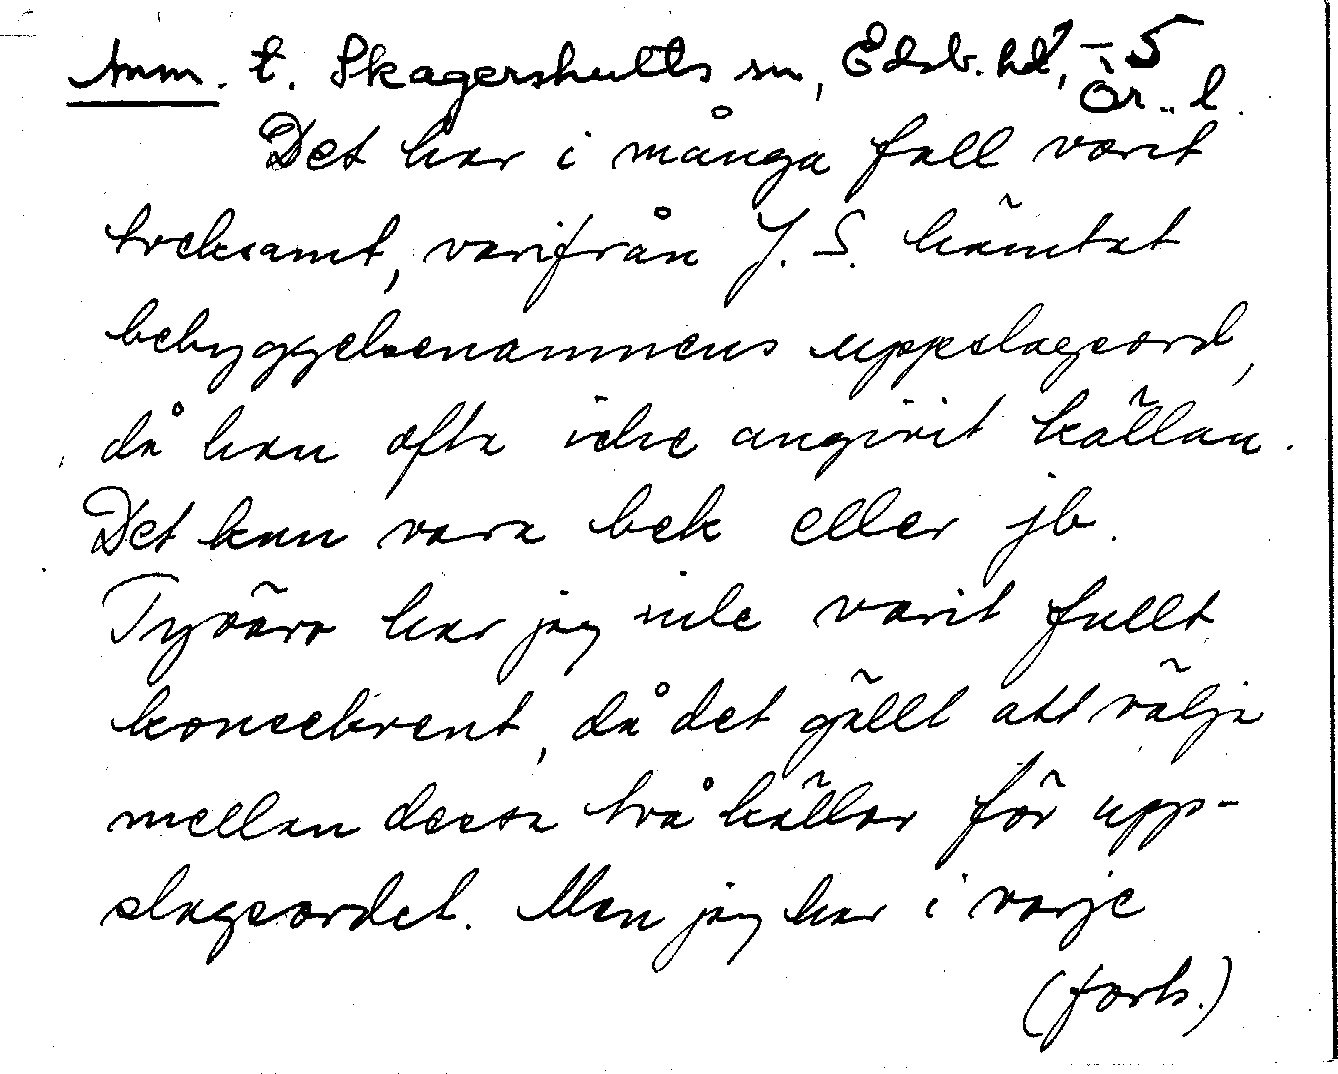 Anm. t. Skagershults sn, Edsb. hd, – 5
Ör. l.
Det har i många fall varit
tveksamt, varifrån J. S. hämtat
bebyggelsenamnens uppslagsord,
då han ofta icke angivit källan.
Det kan vara bek eller jb.
Tyvärr har jag inte varit fullt
konsekvent, då det gällt att välja
mellan dessa två källor för upp-
slagsordet. Men jag har i varje
(forts.)